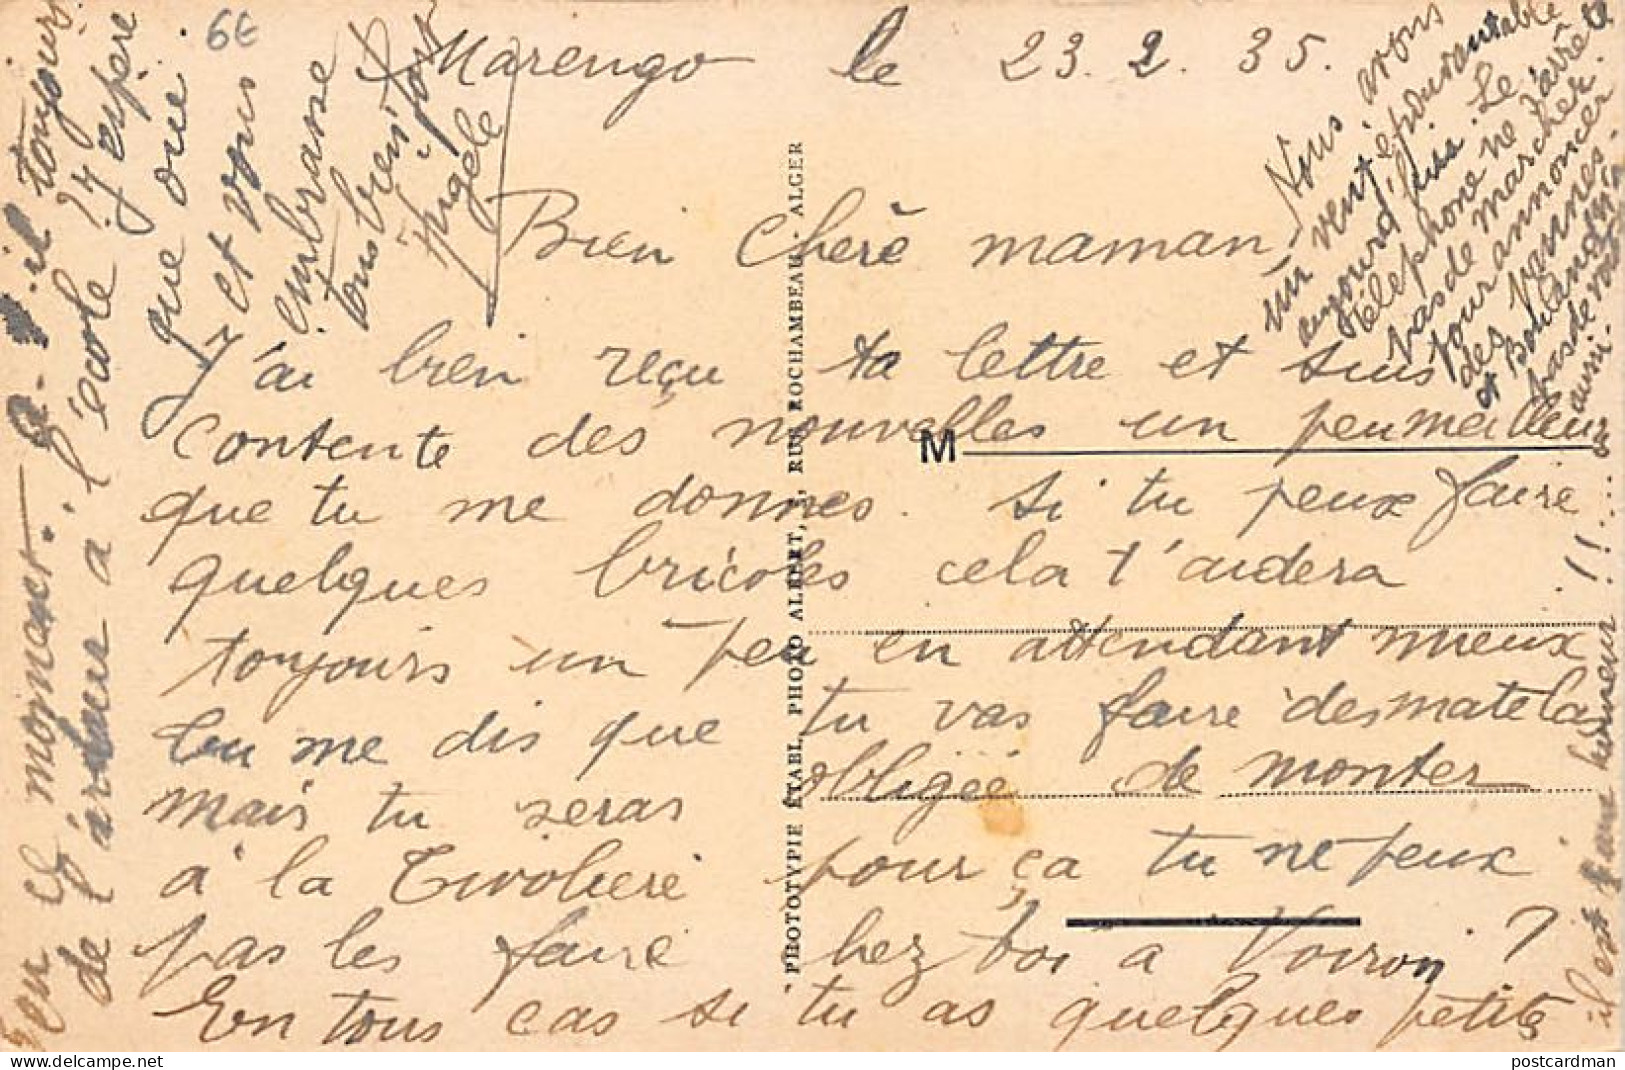 Marengo le 23.2.35.
Bien Cherè maman
J'ai bien reçu ta lettre et suis
contente des nouvelles un peu meilleures
que tu me donnes. Si tu peux faire
quelques bricoles cela t'aidera
toujours un peu en attendant mieux
Tu me dis que tu vas faire des matelas
mais tu seras obligée de monter
à la Tivoliere pour ça tu ne peux
pas les faire chez toi a Voiron ?
En tous cas si tu as quelques petits
pour le moment.
-il toujours
de l'ardeur à l'école ? J'espère
que oui.
J et vous
embrasse
tous bien fort
Angèle
Nous avons
un vent épouvantable
aujourd'hui. Le
téléphone ne s'arrête
pas de marcher
pour annoncer
des vannes.
et Boulanger
pas de
aussi.
il est d'une humeur !!!....
6€
M
PHOTOTYPIE ÉTABL. PHOTO ALBERT, RUE ROCHAMBEAU - ALGER
postcardman